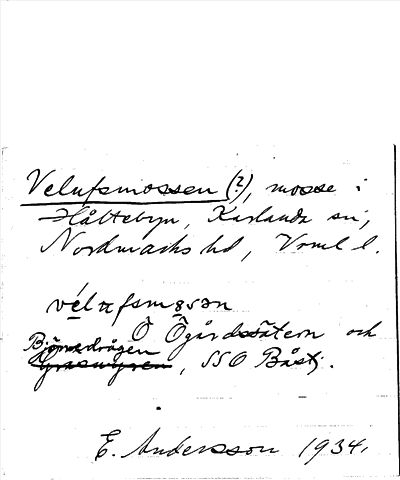 Velufsmossen (?), mosse i
Håltebyn, Karlanda sn,
Nordmarks hd, Vrml l.
vélafsmɔsən
Ö Ögårdssätern och
Björnedrågen
, SSO Båstj.
E. Andersson 1934.